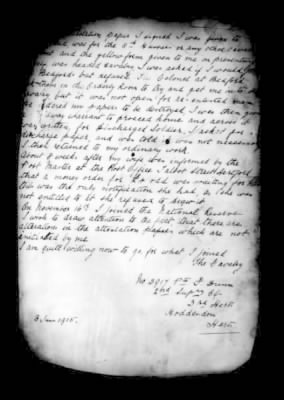 paper I signed I was given to
was for the 5th or any other
and the yellow form given to me in presenting
was headed Cavalry I was asked if I would
Bedford but refused. The Colonel at Bedford
them in the Orderly Room to try and get me in to
Cavalry but it was not open for re-enlisted men
ordered my papers to be destroyed I was then given
warrant to proceed home and across it
was written, for discharged soldier, I asked for
discharge paper, and was told it was not necessary
I then returned to my ordinary work.
About 8 weeks after my wife was informed by the
Post Master at the Post Office Talbot Street Hertford
that a money order for was waiting for her
this was the only notification she had, as she was
not entitled to it she refused to sign it
On November 16th I joined the National Reserve
I wish to draw attention to the fact that there are
alterations in the attestation papers which are not
initialled by me.
I am quite willing now to go for what I joined
The Cavalry
No 3917 Pte F. Dunn
2nd Supny Co
3rd Herts
Hoddesdon
Herts.
3 June 1915.